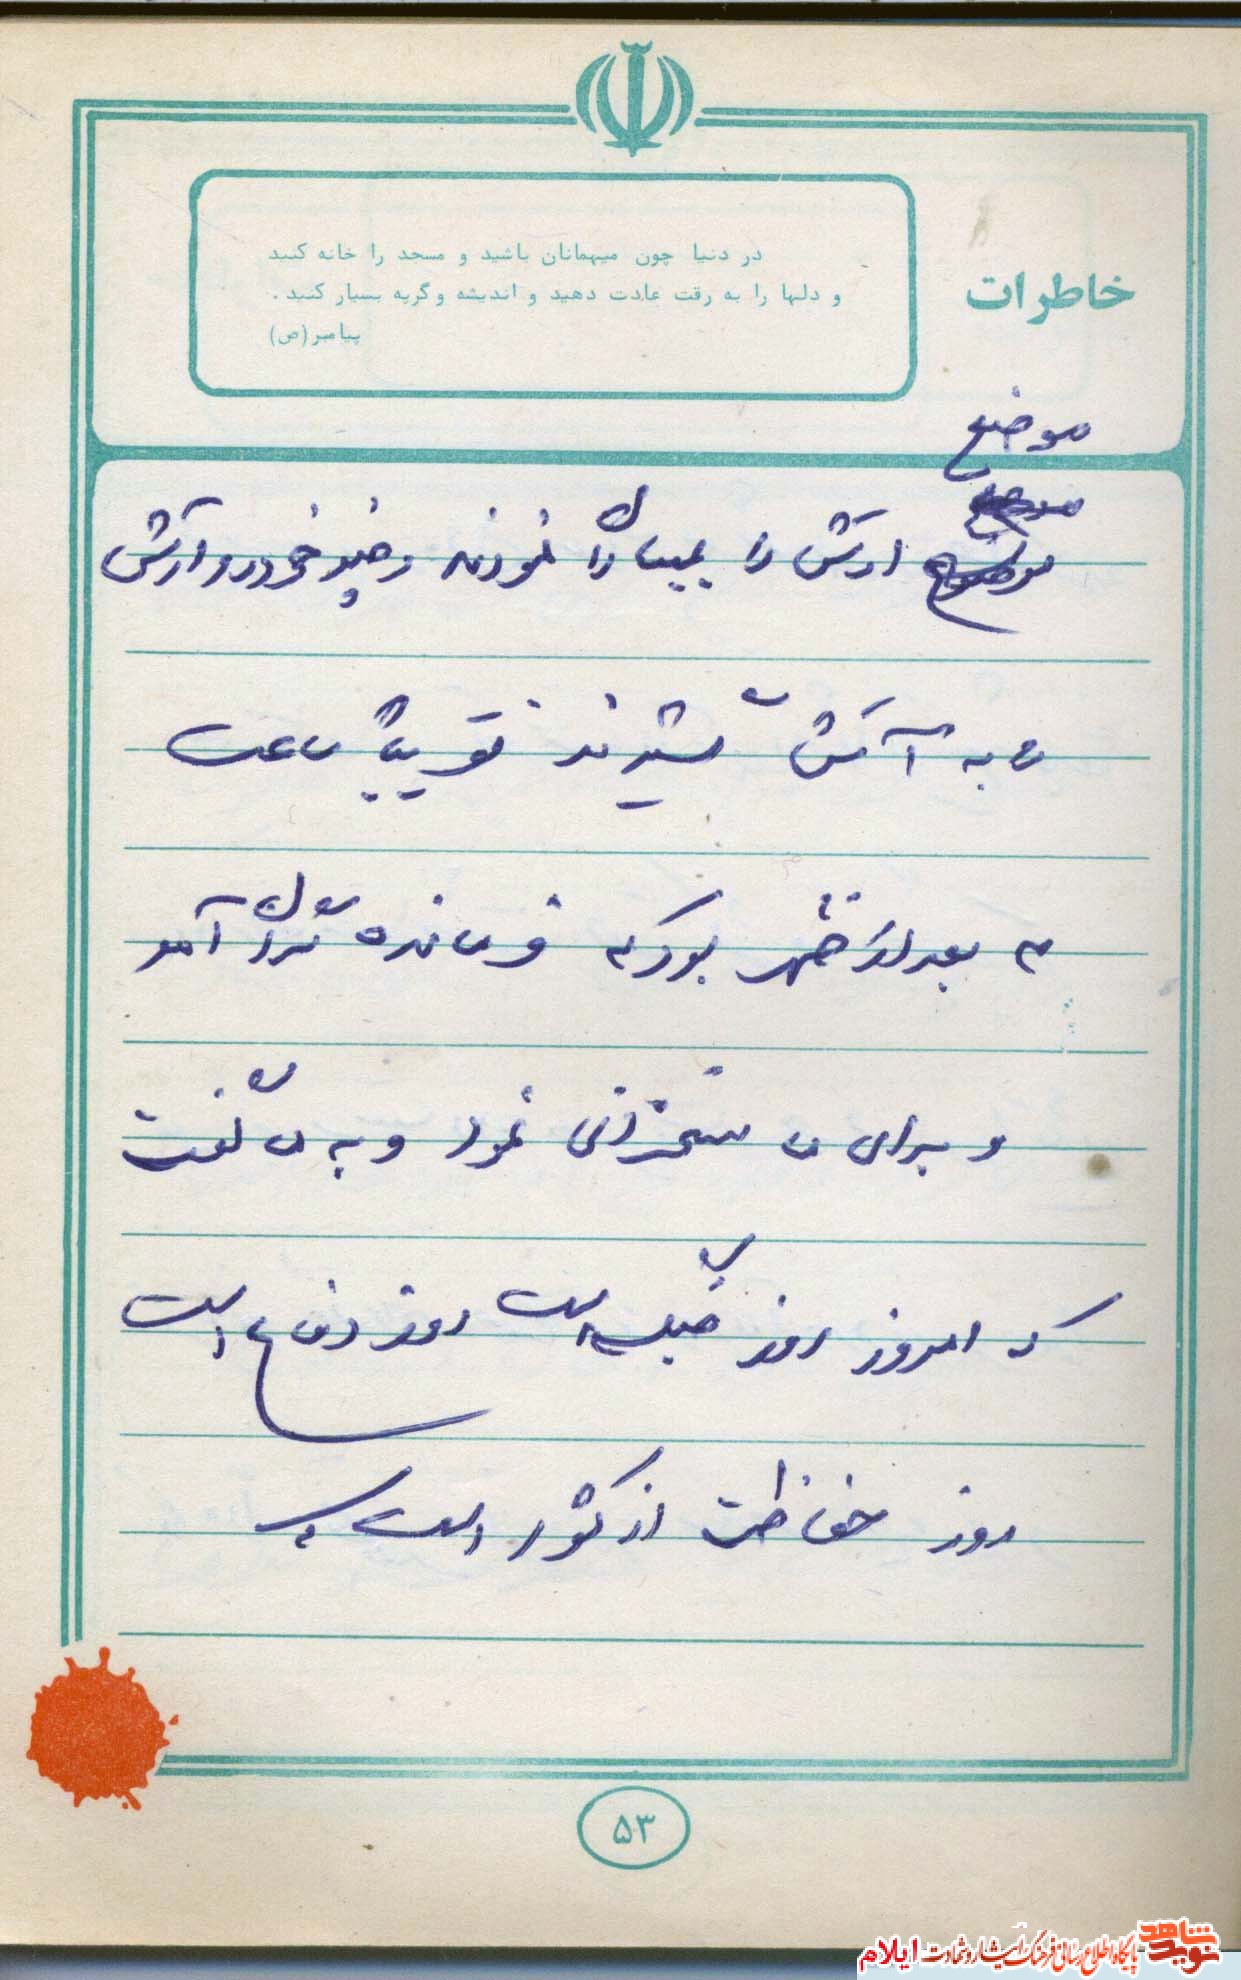 خاطرات
در دنیا چون میهمانان باشید و مسجد را خانه کنید
و دلها را به رقت عادت دهید و اندیشه و گریه بسیار کنید.
پیامبر(ص)
موضع
ارتش را بمباران نمودند و چند خودرو ارتش
به آتش کشیدند تقریباً ساعت
بعد از ظهر بود که فرمانده لشکر آمد
و برای ما سخنرانی نمود و به ما گفت
که امروز روز جنگ است روز دفاع است
روز حفاظت از کشور است
۵۳
نوید شاهد
پایگاه اطلاع رسانی فرهنگ ایثار و شهادت ایلام